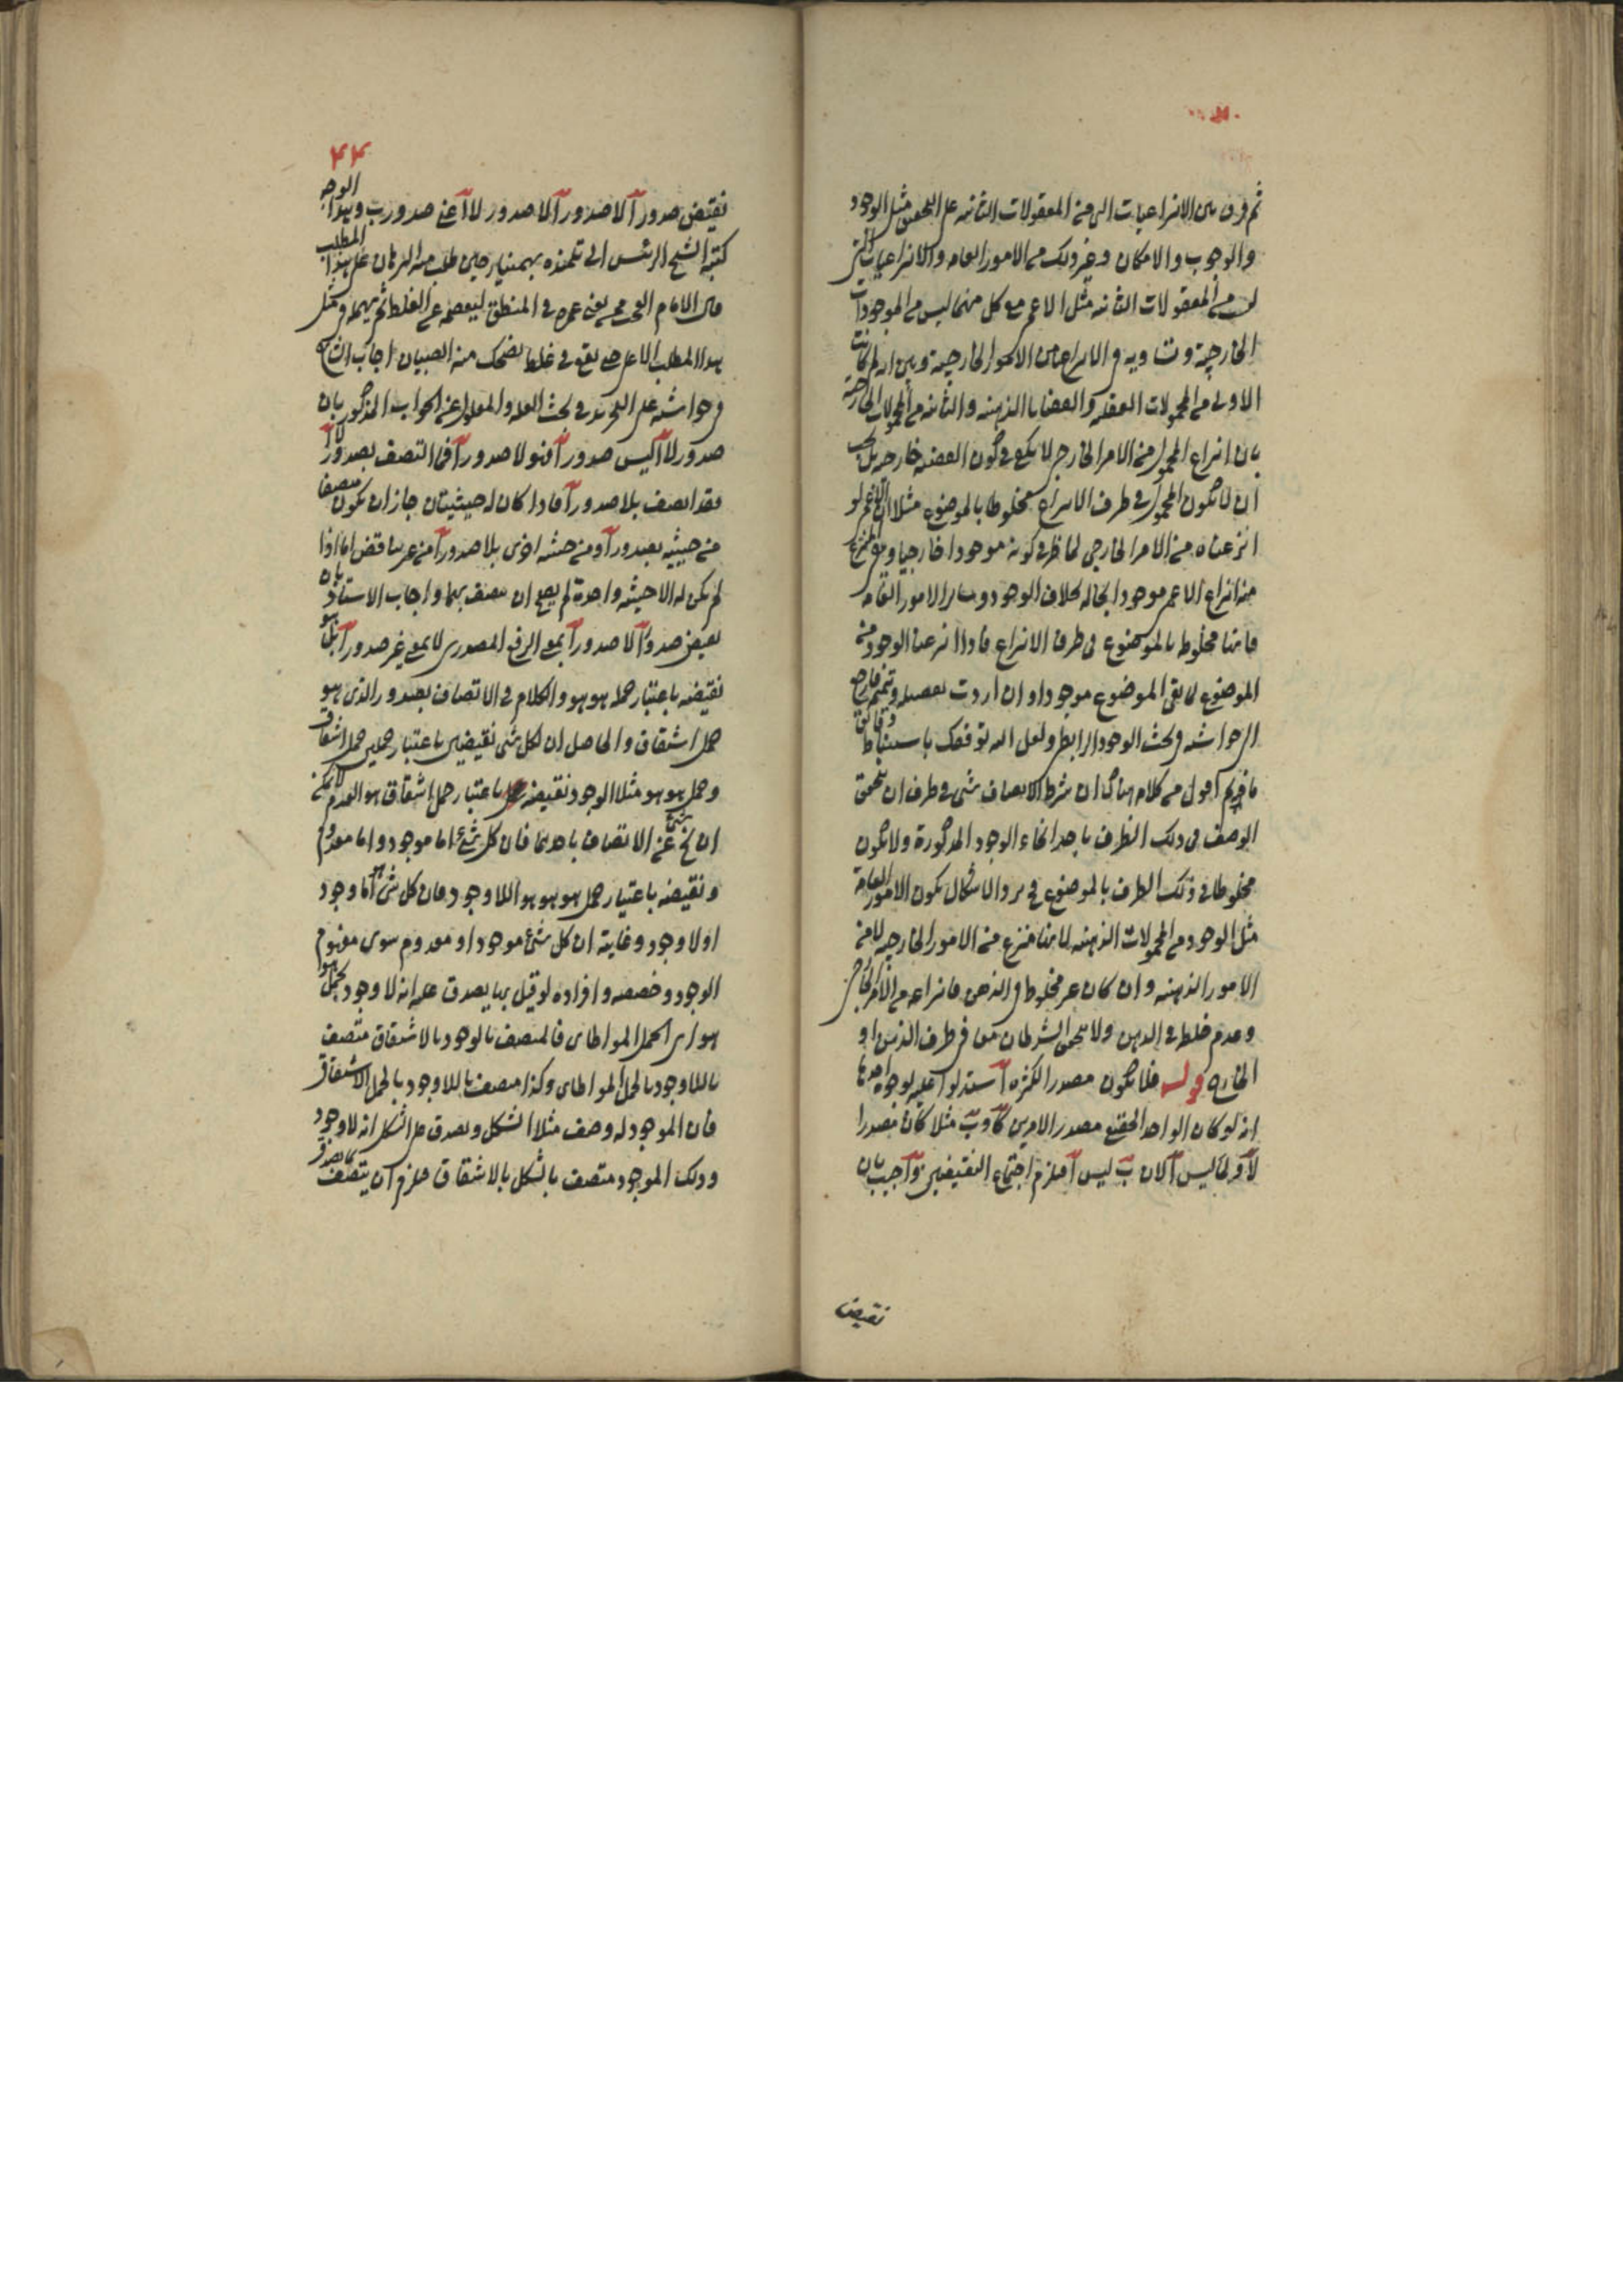 ثم فرق بين الانتزاعيات التي من المعقولات الثانية على التحقيق مثل الوجود
والوجوب والامكان وغير ذلك من الامور العامة والانتزاعيات التي
ليس من المعقولات الثانية مثل الاعمى مع كل منهما ليس من الموجودات
الخارجية وتساويه في الانتزاع من الامور الخارجية وبين انه لم كانت
الاولى من المحمولات العقلية والقضايا الذهنية والثانية من المحمولات الخارجية
بان انتزاع المحمول من الامر الخارجي لا يكفي في كون القضية خارجية بل يجب
ان لا يكون المحمول في ظرف الانتزاع مخلوطا بالموضوع مثلا ان الاعمى لو
انتزعناه من الامر الخارجي لحاظ في كونه موجودا خارجيا وبقي المنتزع
منه انتزاع الاعمى موجودا بحاله بخلاف الوجود وسائر الامور العامة
فانها مخلوط بالموضوع في ظرف الانتزاع فاذا انتزعنا الوجود منه
الموضوع لا يبقى الموضوع موجودا وان اردت تفصيله وتتميم فارجع
الى حواشيه في بحث الوجود الرابطي ولعل الله توفقك باستنباط دقائق
ما فيه اقول من كلام هناك ان شرط الاتصاف شيء في ظرف ان يتحقق
الوصف في ذلك الظرف باحد انحاء الوجود المذكورة ولا يكون
مخلوطا في ذلك الظرف بالموضوع فيرد الاشكال بكون الامور العامة
مثل الوجود من المحمولات الذهنية لانها منتزع من الامور الخارجية لا من
الامور الذهنية وان كان غير مخلوط في الذهن فانتزاعه من الامر الخارجي
وعدم خلط في الذهن ولا يتحقق الشرطان معا في ظرف الذهن او
الخارج قوله فلا يكون مصدر الكثرة استدلوا عليه بوجوه احدها
انه لو كان الواحد الحقيقي مصدر الامرين كآ وب مثلا كان مصدرا
لآ ولما ليس آ لان ب ليس آ فيلزم اجتماع النقيضين واجيب بان
نقيض
۴۴
نقيض صدور آ لا صدور آ لا صدور لا آ اعني صدور ب وهذا الوجه
كتبه الشيخ الرئيس الى تلميذه بهمنيار حين طلب منه البرهان على هذا المطلب
قال الامام العجب ممن يفني عمره في المنطق ليعصمه عن الغلط ثم يهمله في مثل
هذا المطلب الاعلى حتى يقع في غلط يضحك منه الصبيان اجاب الشارح
في حواشيه على التجريد في بحث العلة والمعلول عن الجواب المذكور بان
صدور لا آ ليس صدور آ فهو لا صدور آ فما اتصف بصدور لا آ
فقد اتصف بلا صدور آ فاذا كان له حيثيتان جاز ان يكون متصفا
من حيثية بصدور آ ومن حيثية اخرى بلا صدور آ من غير تناقض اما اذا
لم يكن له الا حيثية واحدة لم يصح ان يتصف بهما واجاب الاستاذ بان
نقيض صدور آ لا صدور آ بمعنى الرفع المصدري لا بمعنى غير صدور آ بل هو
نقيضه باعتبار حمله هو هو والكلام في الاتصاف بصدور الذي هو
حمل اشتقاق والحاصل ان لكل شيء نقيضين باعتبار حملين حمل اشتقاق
وحمل هو هو مثلا الوجود نقيضه باعتبار حمل اشتقاق هو العدم لا يمكن
ان يخ شيء عن الاتصاف باحدهما فان كل شيء اما موجود واما معدوم
ونقيضه باعتبار حمل هو هو هو اللاوجود فان كل شيء اما وجود
او لا وجود وغايته ان كل شيء موجود او معدوم سوى مفهوم
الوجود وحصصه وافراده لو قيل بها يصدق عليه انه لا وجود بحمل هو
هو اي الحمل المواطاتي فالمتصف بالوجود بالاشتقاق متصف
باللاوجود بالحمل المواطاتي وكذا متصف باللاوجود بالحمل الاشتقاقي
فان الموجود له وصف مثلا الشكل ويصدق على الشكل انه لا وجود
وذلك الموجود متصف بالشكل بالاشتقاق فيلزم ان يتصف بما يصدق